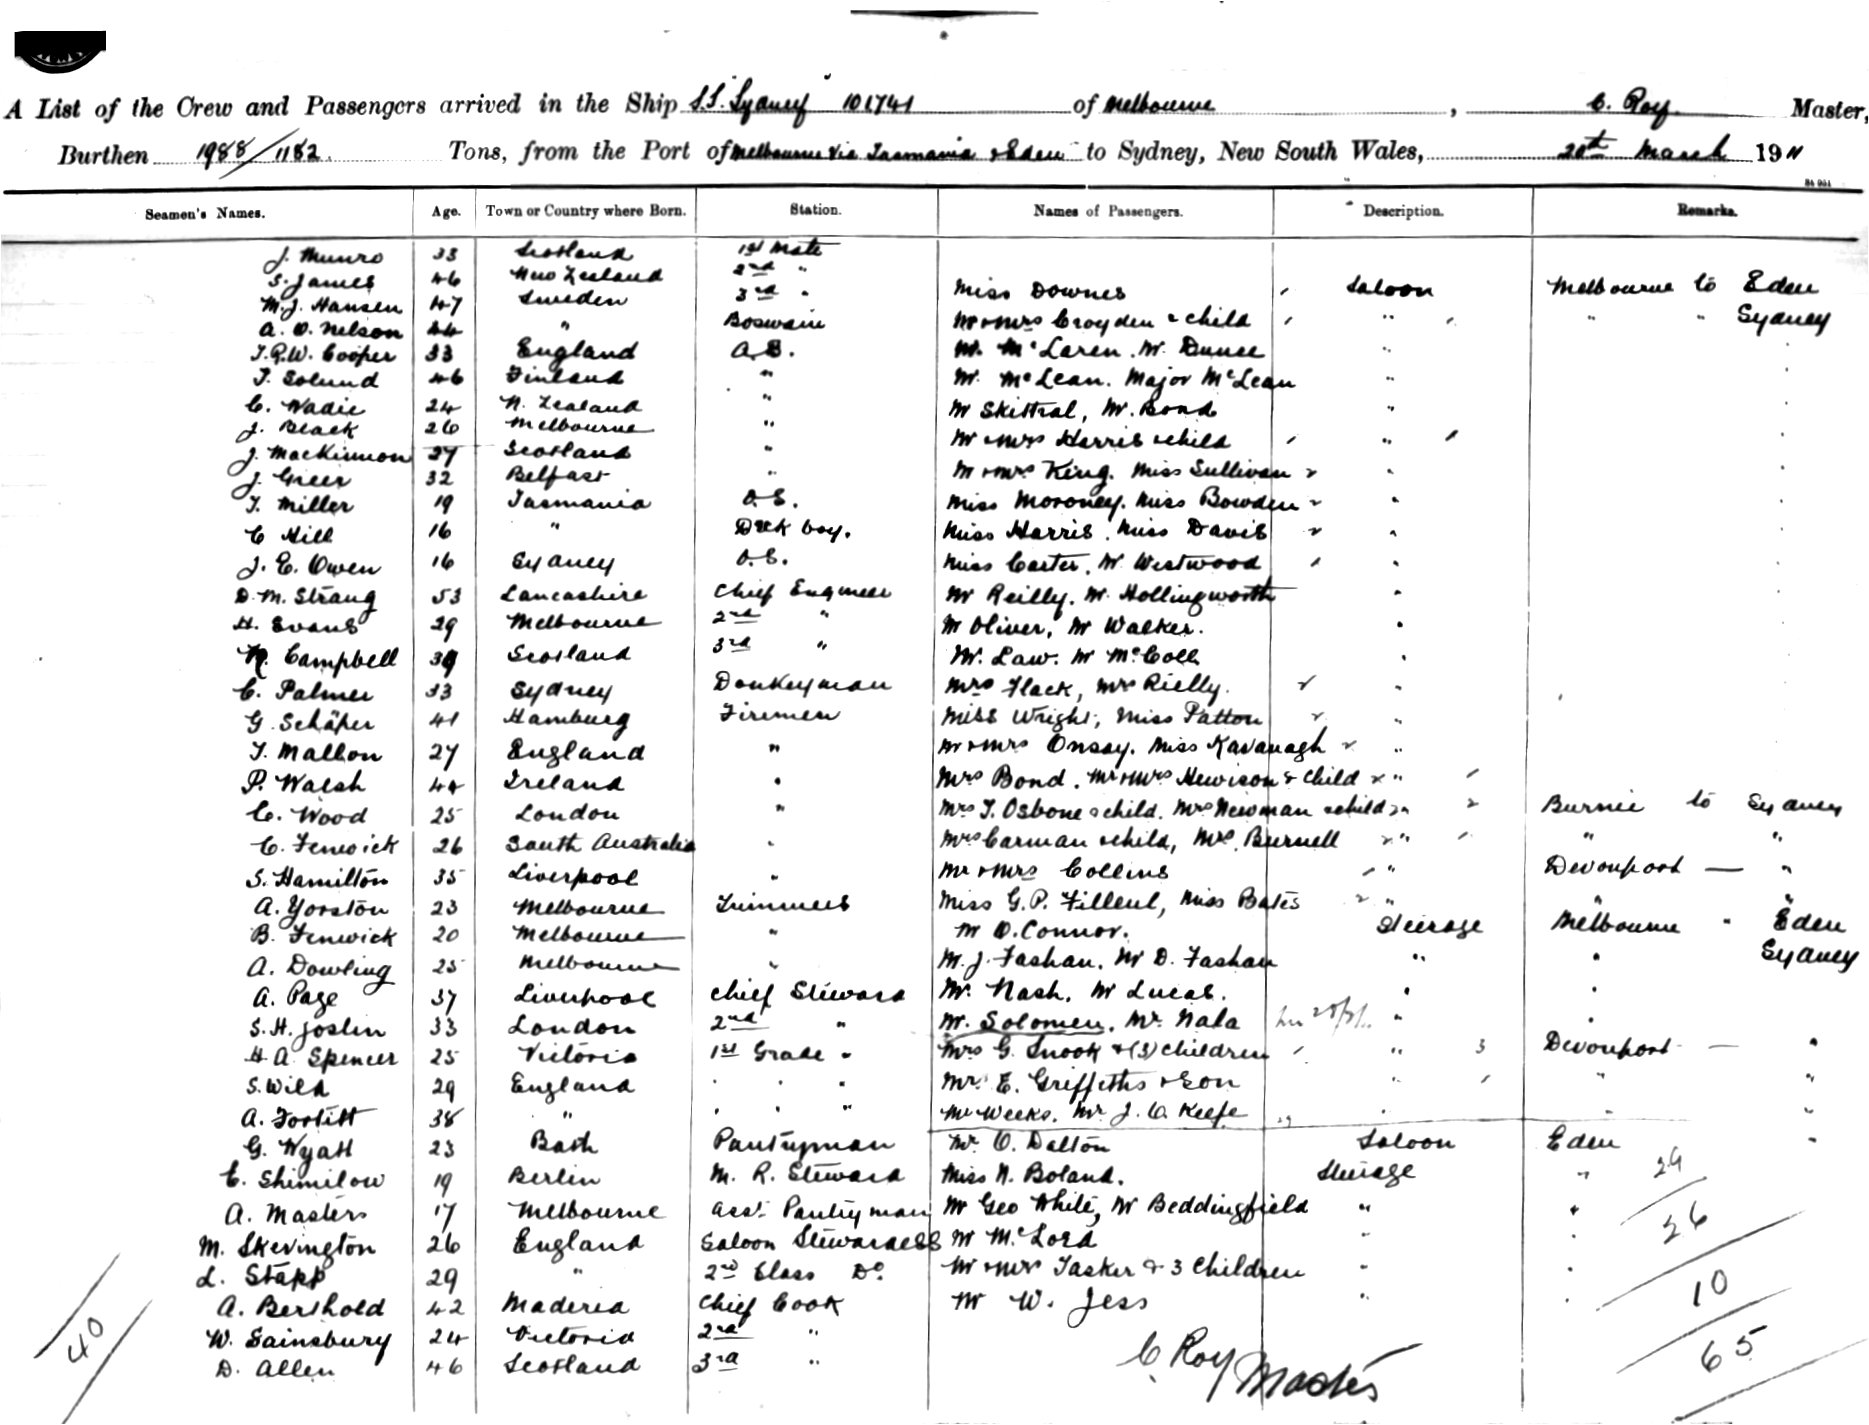 A List of the Crew and Passengers arrived in the Ship S.S. Sydney 101741 of Melbourne, C. Roy. Master,
Burthen 1988/1182 Tons, from the Port of Melbourne via Tasmania & Eden to Sydney, New South Wales, 20th March 1911
Seamen's Names. Age. Town or Country where Born. Station. Names of Passengers. Description. Remarks.
J. Munro 33 Scotland 1st Mate
S. James 46 New Zealand 2nd "
M. J. Hansen 47 Sweden 3rd " Miss Downes Saloon Melbourne to Eden
A. O. Nelson 44 " Boswain Mr & Mrs Croyden & child " " " Sydney
T.R.W. Cooper 33 England A.B. Mr. McLaren. Mr. Dunce "
T. Solund 46 Finland " Mr. McLean. Major McLean "
C. Wadie 24 N. Zealand " Mr Skittral, Mr. Bond "
J. Black 26 Melbourne " Mr & Mrs Harris & child "
J. MacKinnon 27 Scotland " Mr & Mrs King. Miss Sullivan "
J. Greer 32 Belfast " Miss Moroney. Miss Bowden "
T. Miller 19 Tasmania O.S. Miss Harris. Miss Davis "
C Hill 16 " Deck boy. Miss Carter. Mr. Westwood "
J. E. Owen 16 Sydney O.S. Mr Reilly. Mr. Hollingworth "
D. M. Strang 53 Lancashire Chief Engineer Mr Oliver, Mr Walker. "
H. Evans 29 Melbourne 2nd " Mr. Law. Mr McColl "
Campbell 39 Scotland 3rd " Mrs Flack, Mrs Rielly. "
C. Palmer 33 Sydney Donkeyman Miss Wright, Miss Patton "
G. Schäfer 41 Hamburg Firemen Mr & Mrs Onsay. Miss Kavanagh "
T. Mallon 27 England " Mrs Bond. Mr & Mrs Hewison & Child "
P. Walsh 44 Ireland " Mrs T. Osbone & child. Mrs Newman & child " Burnie to Sydney
C. Wood 25 London " Mrs Carman & child, Mrs. Burnell " " "
C. Fenwick 26 South Australia " Mr & Mrs Collins " Devonport — "
S. Hamilton 35 Liverpool " Miss G. P. Filleul, Miss Bates " " "
A. Yorston 23 Melbourne Trimmers Mr O. Connor. Steerage Melbourne " Eden
B. Fenwick 20 Melbourne " M. J. Fashan. Mr D. Fashan " " Sydney
A. Dowling 25 Melbourne " Mr. Nash. Mr Lucas. " "
A. Page 37 Liverpool Chief Steward Mr. Solomen. Mr. Nala " "
S. H. Joslin 33 London 2nd " Mrs G. Snook & (3) children " 3 Devonport — "
H. A. Spencer 25 Victoria 1st Grade " Mr. E. Griffiths & Son " " "
S. Wild 29 England " " " Mr Weeks. Mr J. O. Keefe " " "
A. Footitt 38 " " " " Mr. O. Dalton Saloon Eden "
G. Wyatt 23 Bath Pantryman Miss N. Boland. Steerage " 29
E. Shimilow 19 Berlin M. R. Steward Mr Geo White, Mr Beddingfield " " 26
A. Masters 17 Melbourne Asst. Pantryman Mr McLord " "
M. Skevington 26 England Saloon Stewardess Mr & Mrs Tasker & 3 Children " " 10
L. Stapp 29 " 2nd Class Do. Mr W. Jess " "
A. Berthold 42 Maderia Chief Cook
W. Sainsbury 24 Victoria 2nd " 65
D. Allen 46 Scotland 3rd "
40
C Roy Master